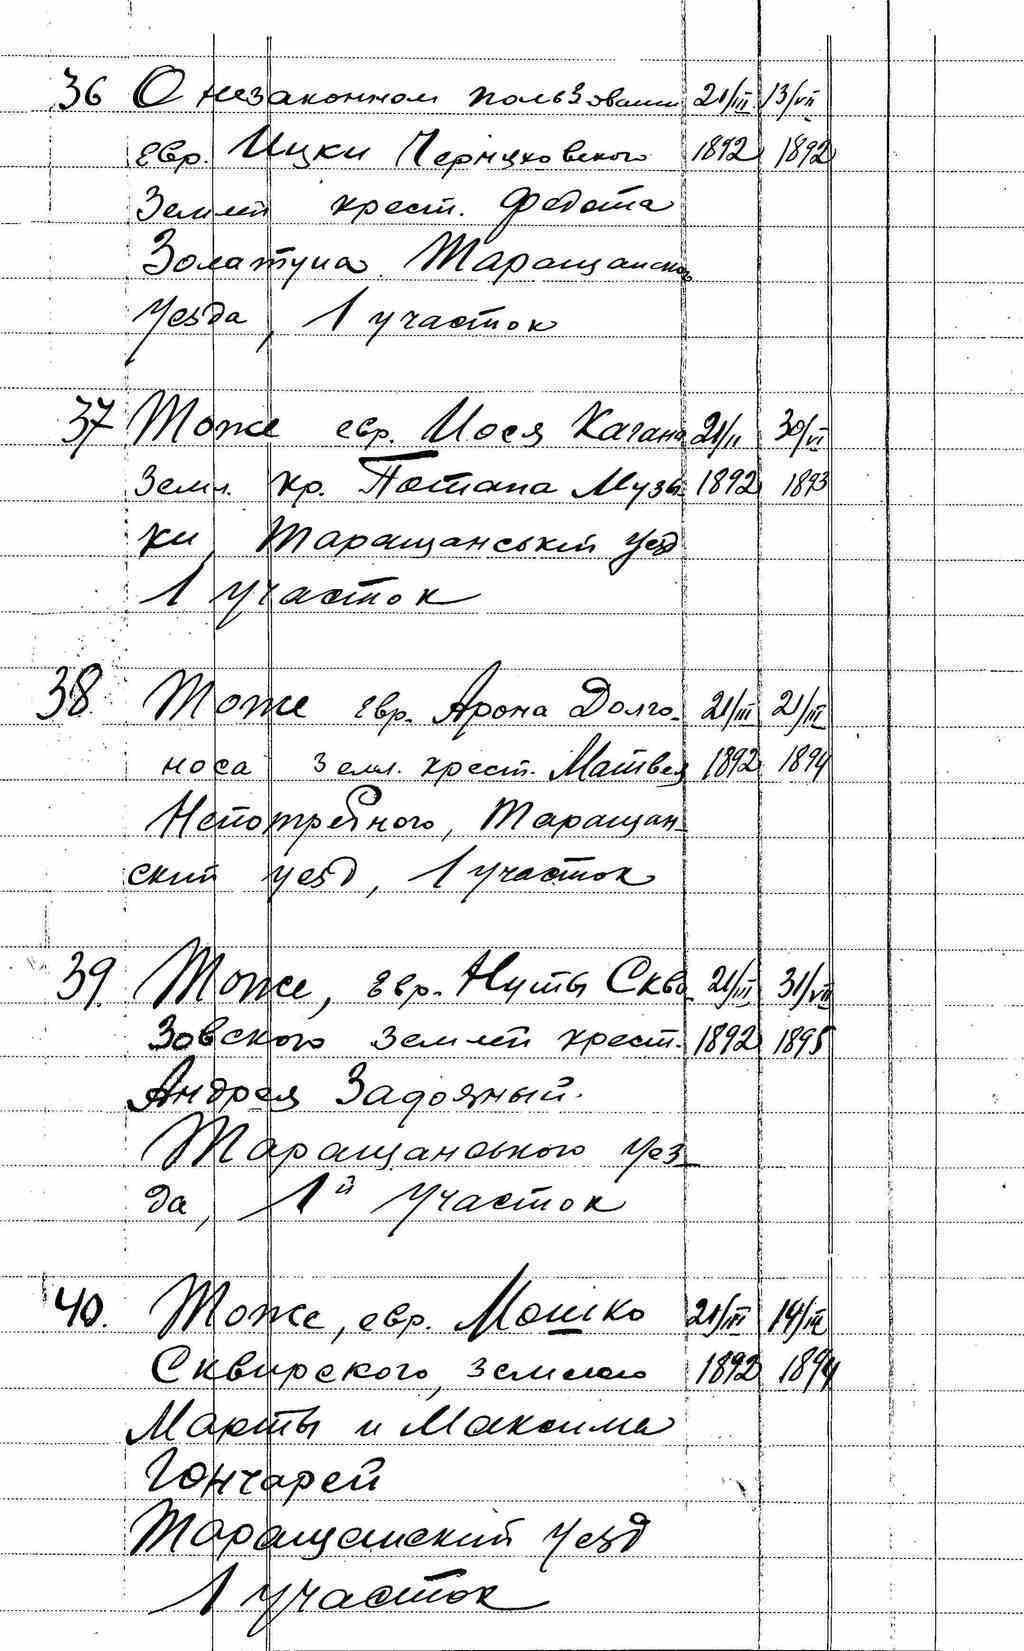 36 О незаконном пользовании 21/III 13/VII
евр. Ицки Черняховского 1892 1892
землей крест. Федота
Золатуна Таращанского
уезда, 1 участок
37 Тоже евр. Иося Кагана 21/II 30/VI
земл. кр. Потапа Музы- 1892 1893
ки, Таращанській уезд
1 участок
38. Тоже евр. Арона Долго- 21/III 21/III
носа земл. крест. Матвея 1892 1894
Непотребного, Таращан-
ский уезд, 1 участок
39. Тоже, евр. Нуты Скво- 21/III 31/VII
зовского землей крест. 1892 1895
Андрея Задояный.
Таращанського уез-
да, 1й участок
40. Тоже, евр. Мошко 21/III 14/III
Сквирского, землею 1892 1894
Марты и Максима
Гончарей
Таращанский уезд
1 участок